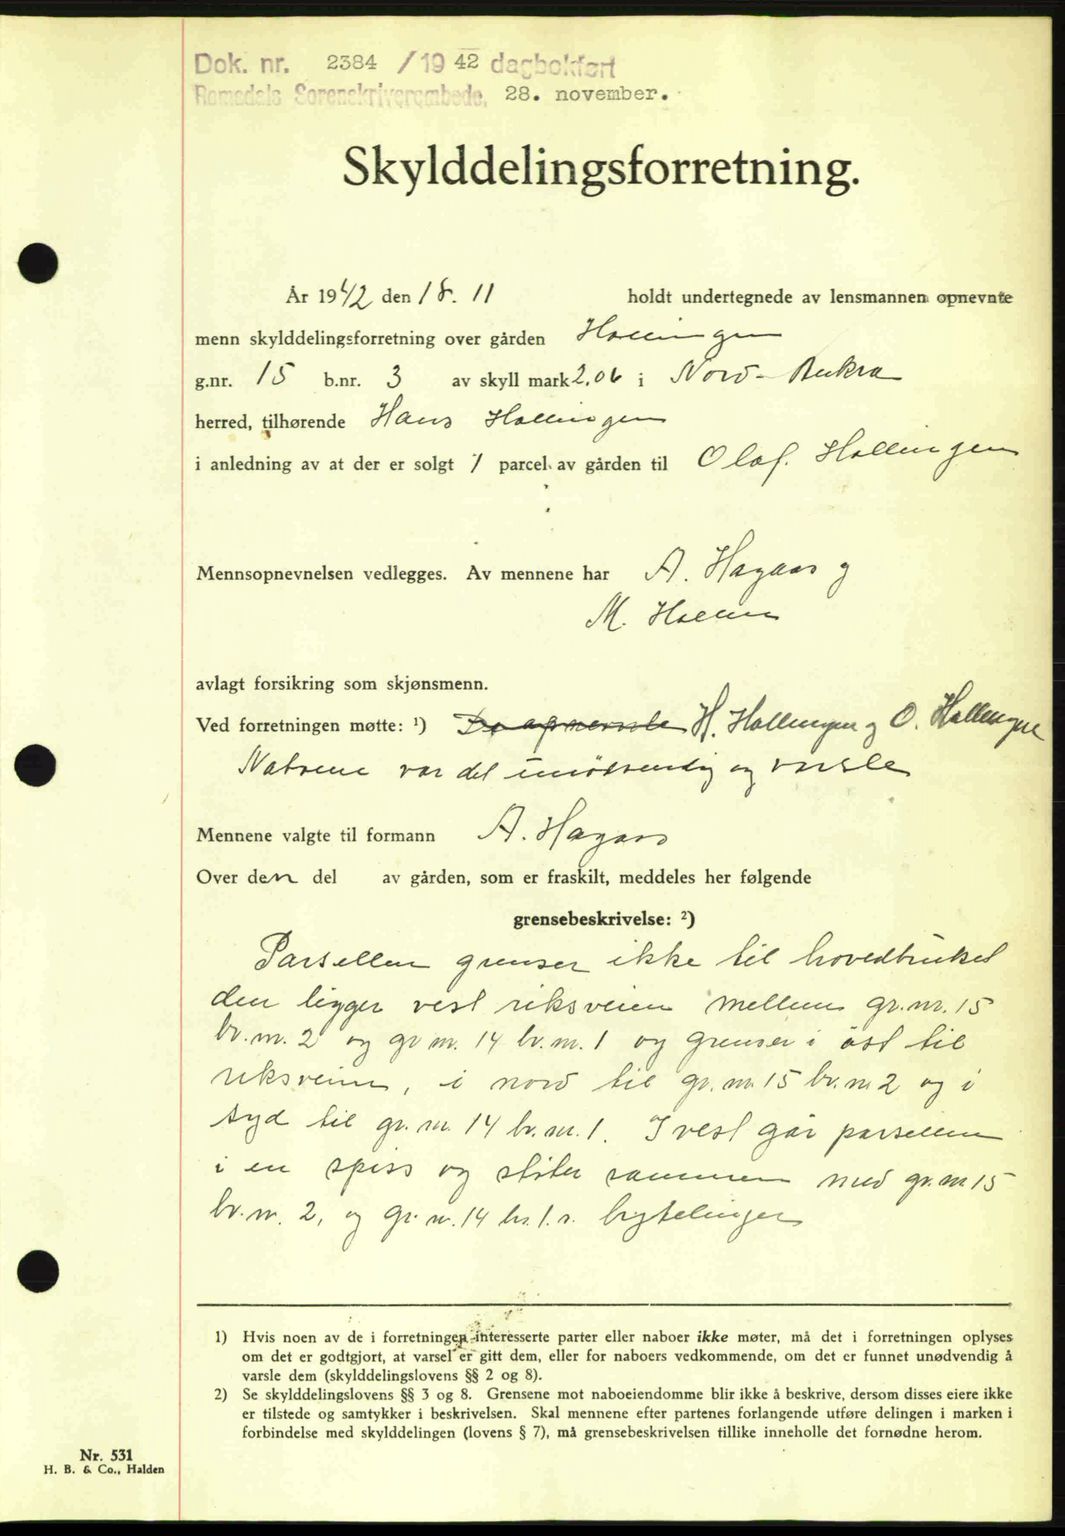 Dok. nr. 2384 /19 42 dagbokført
Romsdals Sorenskriverembede, 28. november.
Skylddelingsforretning.
År 1942 den 18. 11 holdt undertegnede av lensmannen opnevnte
menn skylddelingsforretning over gården Hollingen
g.nr. 15 b.nr. 3 av skyll mark 2,06 i Nord-Aukra
herred, tilhørende Hans Hollingen
i anledning av at der er solgt 1 parcel av gården til Olaf. Hollingen
Mennsopnevnelsen vedlegges. Av mennene har A. Hagaas og
M.
avlagt forsikring som skjønsmenn.
Ved forretningen møtte: ¹) H. Hollingen og O. Hollingen
Naboene var det unødvendig og varsle
Mennene valgte til formann A. Hagaas
Over den del av gården, som er fraskilt, meddeles her følgende
grensebeskrivelse: ²)
Parsellen grenser ikke til hovedbruket
den ligger vest riksveien mellem gr.nr. 15
br.nr. 2 og gr nr. 14 br.nr. 1 og grenser i øst til
riksveien, i nord til gr.nr. 15 br.nr 2 og i
syd til gr.nr. 14 br.nr. 1. I vest går parsellen
i en spiss og støter sammen med gr.nr 15
br.nr. 2, og gr.nr. 14 br. 1.s. bytelinjer
1) Hvis noen av de i forretningen interesserte parter eller naboer ikke møter, må det i forretningen oplyses
om det er godtgjort, at varsel er gitt dem, eller for naboers vedkommende, om det er funnet unødvendig å
varsle dem (skylddelingslovens §§ 2 og 8).
2) Se skylddelingslovens §§ 3 og 8. Grensene mot naboeiendomme blir ikke å beskrive, dersom disses eiere ikke
er tilstede og samtykker i beskrivelsen. Skal mennene efter partenes forlangende utføre delingen i marken i
forbindelse med skylddelingen (lovens § 7), må grensebeskrivelsen tillike inneholle det fornødne herom.
Nr. 531
H. B. & Co., Halden